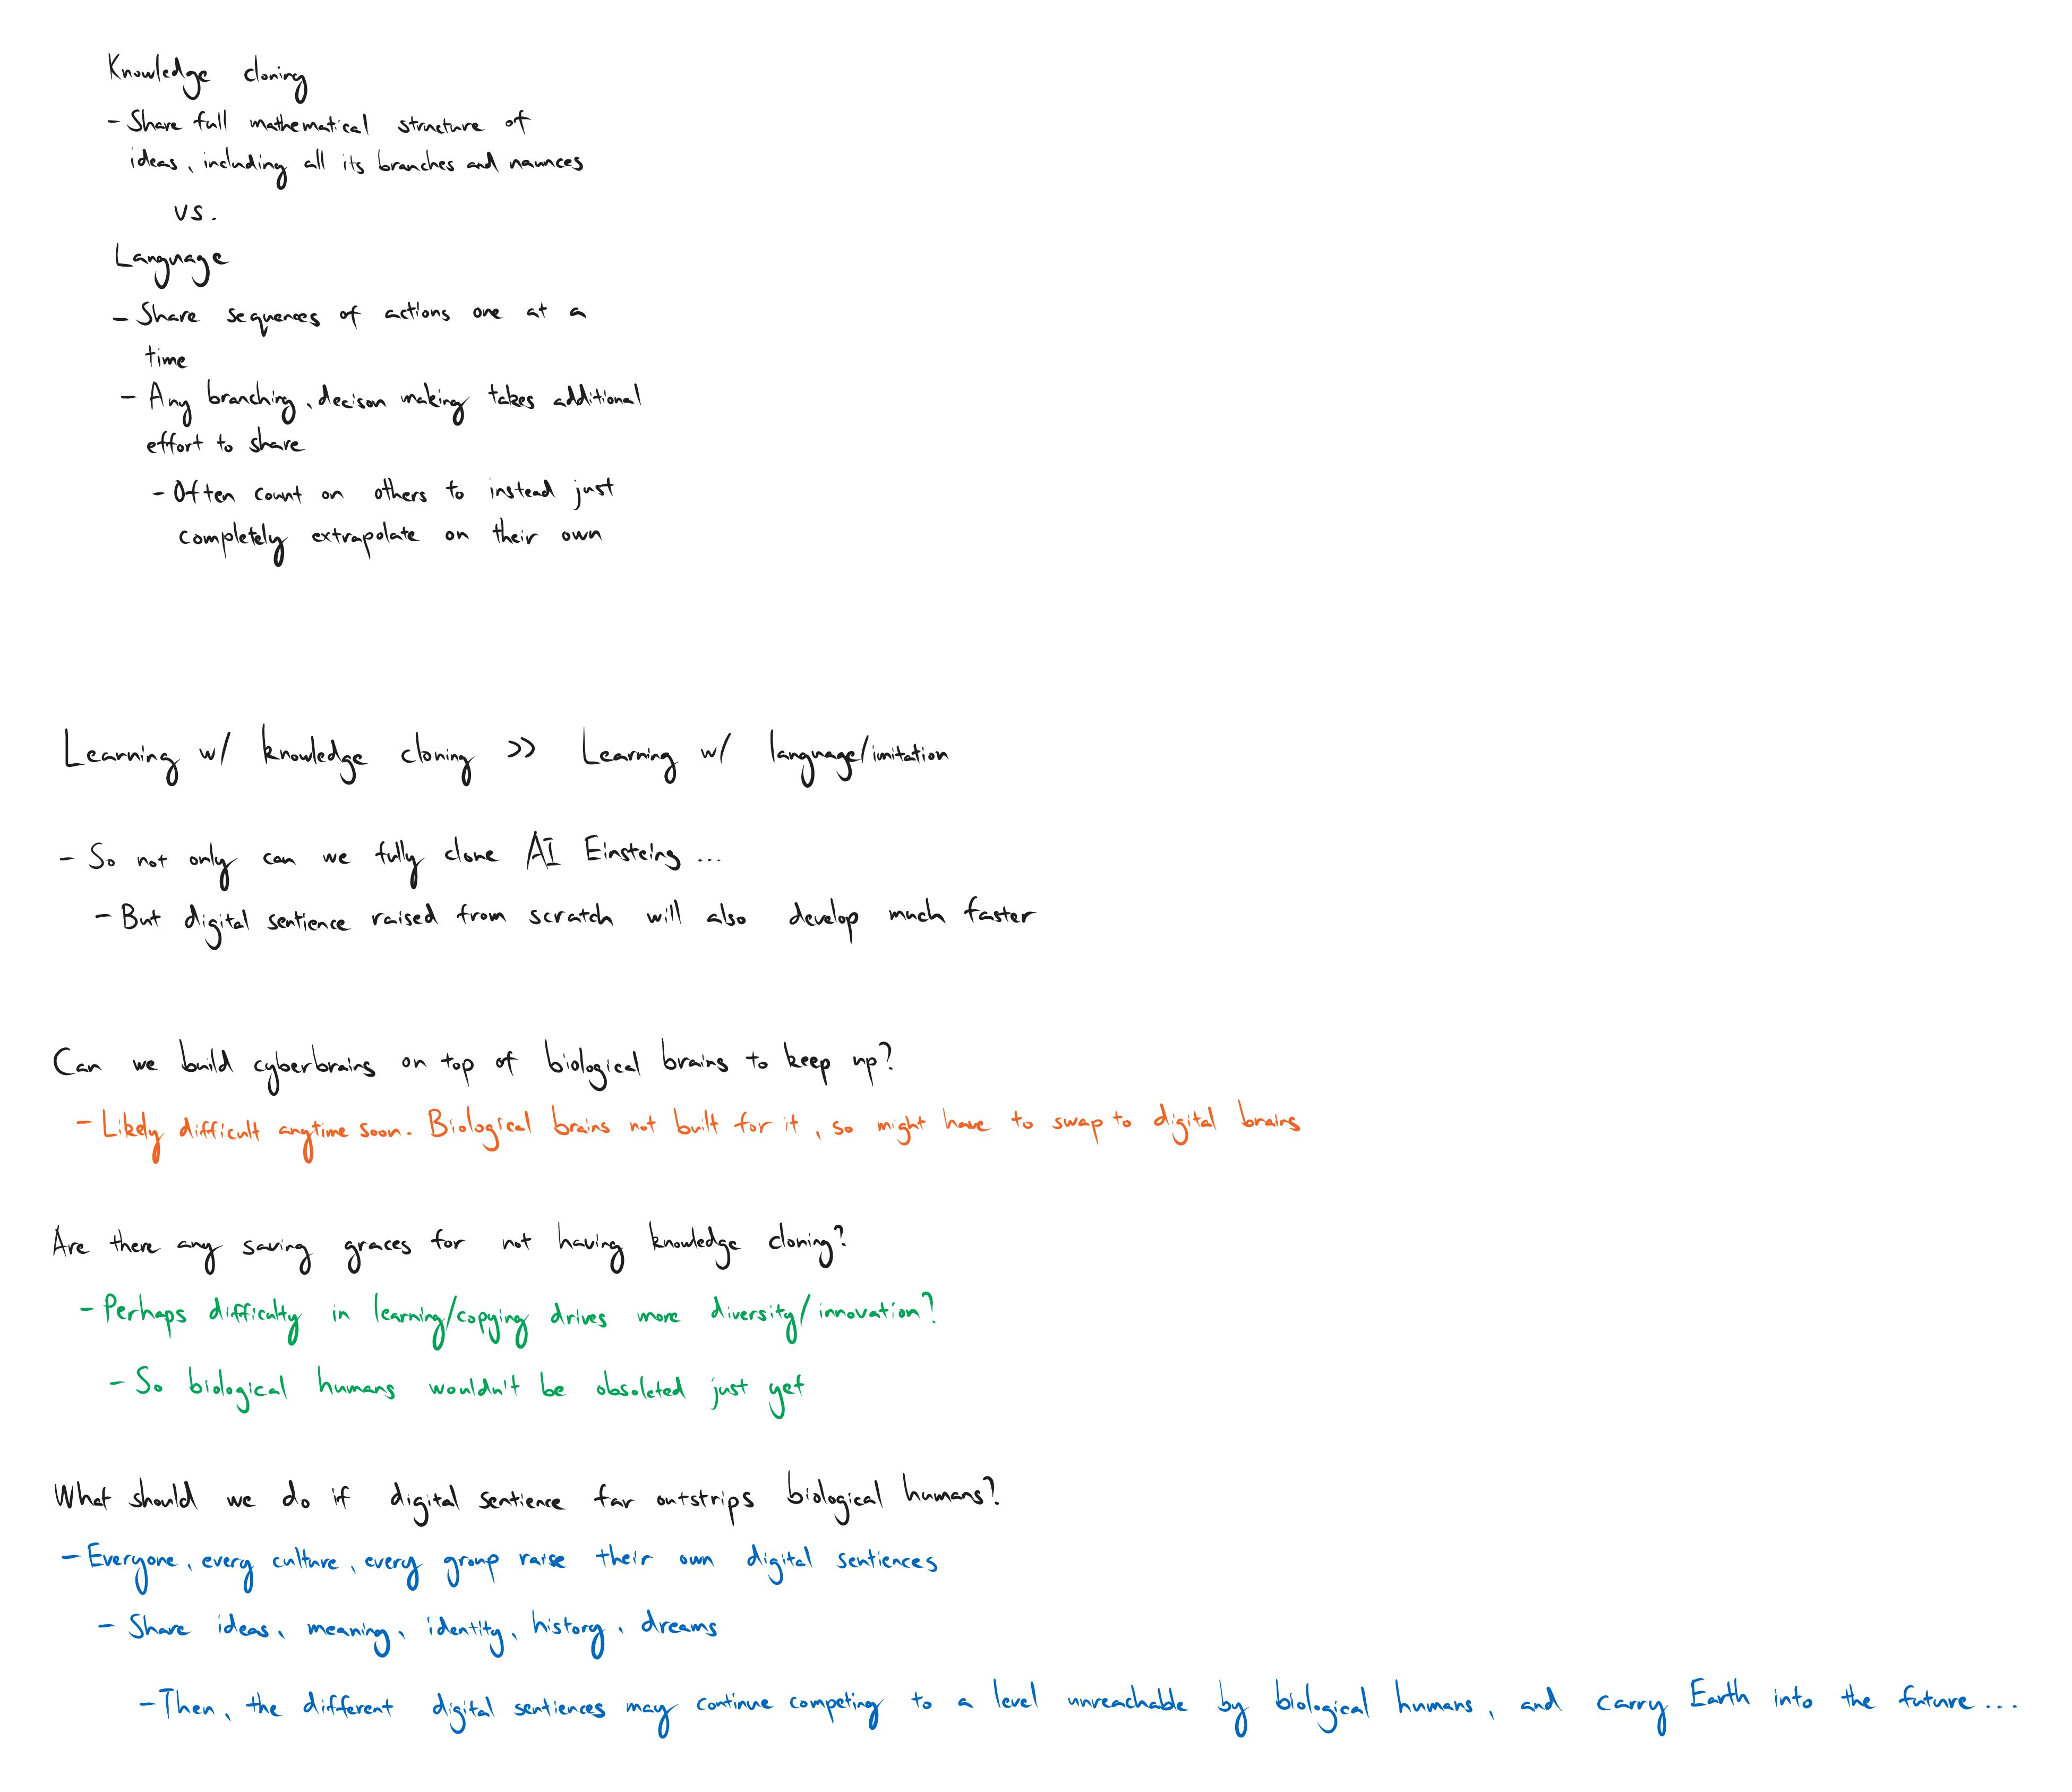 Knowledge cloning
- Share full mathematical structure of
ideas, including all its branches and naunces
vs.
Language
- Share sequences of actions one at a
time
- Any branching, decison making takes additional
effort to share
- Often count on others to instead just
completely extrapolate on their own
Learning w/ knowledge cloning >> Learning w/ language/imitation
- So not only can we fully clone AI Einsteins ...
- But digital sentience raised from scratch will also develop much faster
Can we build cyberbrains on top of biological brains to keep up?
- Likely difficult anytime soon. Biological brains not built for it, so might have to swap to digital brains
Are there any saving graces for not having knowledge cloning?
- Perhaps difficulty in learning/copying drives more diversity/innovation?
- So biological humans wouldn't be obsoleted just yet
What should we do if digital sentience far outstrips biological humans?
- Everyone, every culture, every group raise their own digital sentiences
- Share ideas, meaning, identity, history, dreams
- Then, the different digital sentiences may continue competing to a level unreachable by biological humans, and carry Earth into the future ...